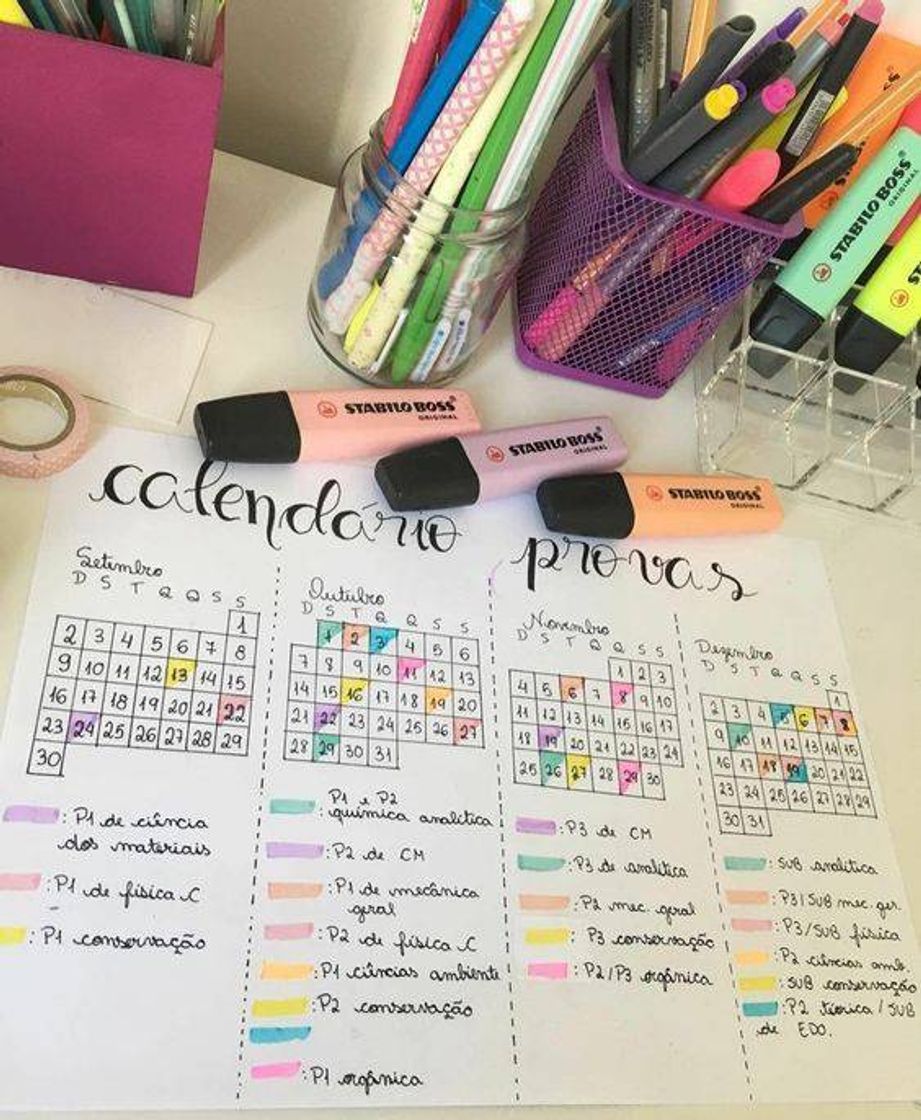 STABILO BOSS
ORIGINAL
STABILO BOSS
ORIGINAL
STABILO BOSS
ORIGINAL
STABILO BOSS
ORIGINAL
calendário
provas
Setembro
D S T Q Q S S
1
2 3 4 5 6 7 8
9 10 11 12 13 14 15
16 17 18 19 20 21 22
23 24 25 26 27 28 29
30
: P1 de ciência
dos materiais
: P1 de física C
: P1 conservação
Outubro
D S T Q Q S S
1 2 3 4 5 6
7 8 9 10 11 12 13
14 15 16 17 18 19 20
21 22 23 24 25 26 27
28 29 30 31
P1 e P2
: química analítica
: P2 de CM
: P1 de mecânica
geral
: P2 de física C
: P1 ciências ambiente
: P2 conservação
: P1 orgânica
Novembro
D S T Q Q S S
1 2 3
4 5 6 7 8 9 10
11 12 13 14 15 16 17
18 19 20 21 22 23 24
25 26 27 28 29 30
: P3 de CM
: P3 de analítica
: P2 mec. geral
: P3 conservação
: P2/P3 orgânica
Dezembro
D S T Q Q S S
1
2 3 4 5 6 7 8
9 10 11 12 13 14 15
16 17 18 19 20 21 22
23 24 25 26 27 28 29
30 31
: SUB analítica
: P3/SUB mec. ger.
: P3/SUB física
: P2 ciências amb.
: SUB conservação
: P2 teórica / SUB
de EDO.